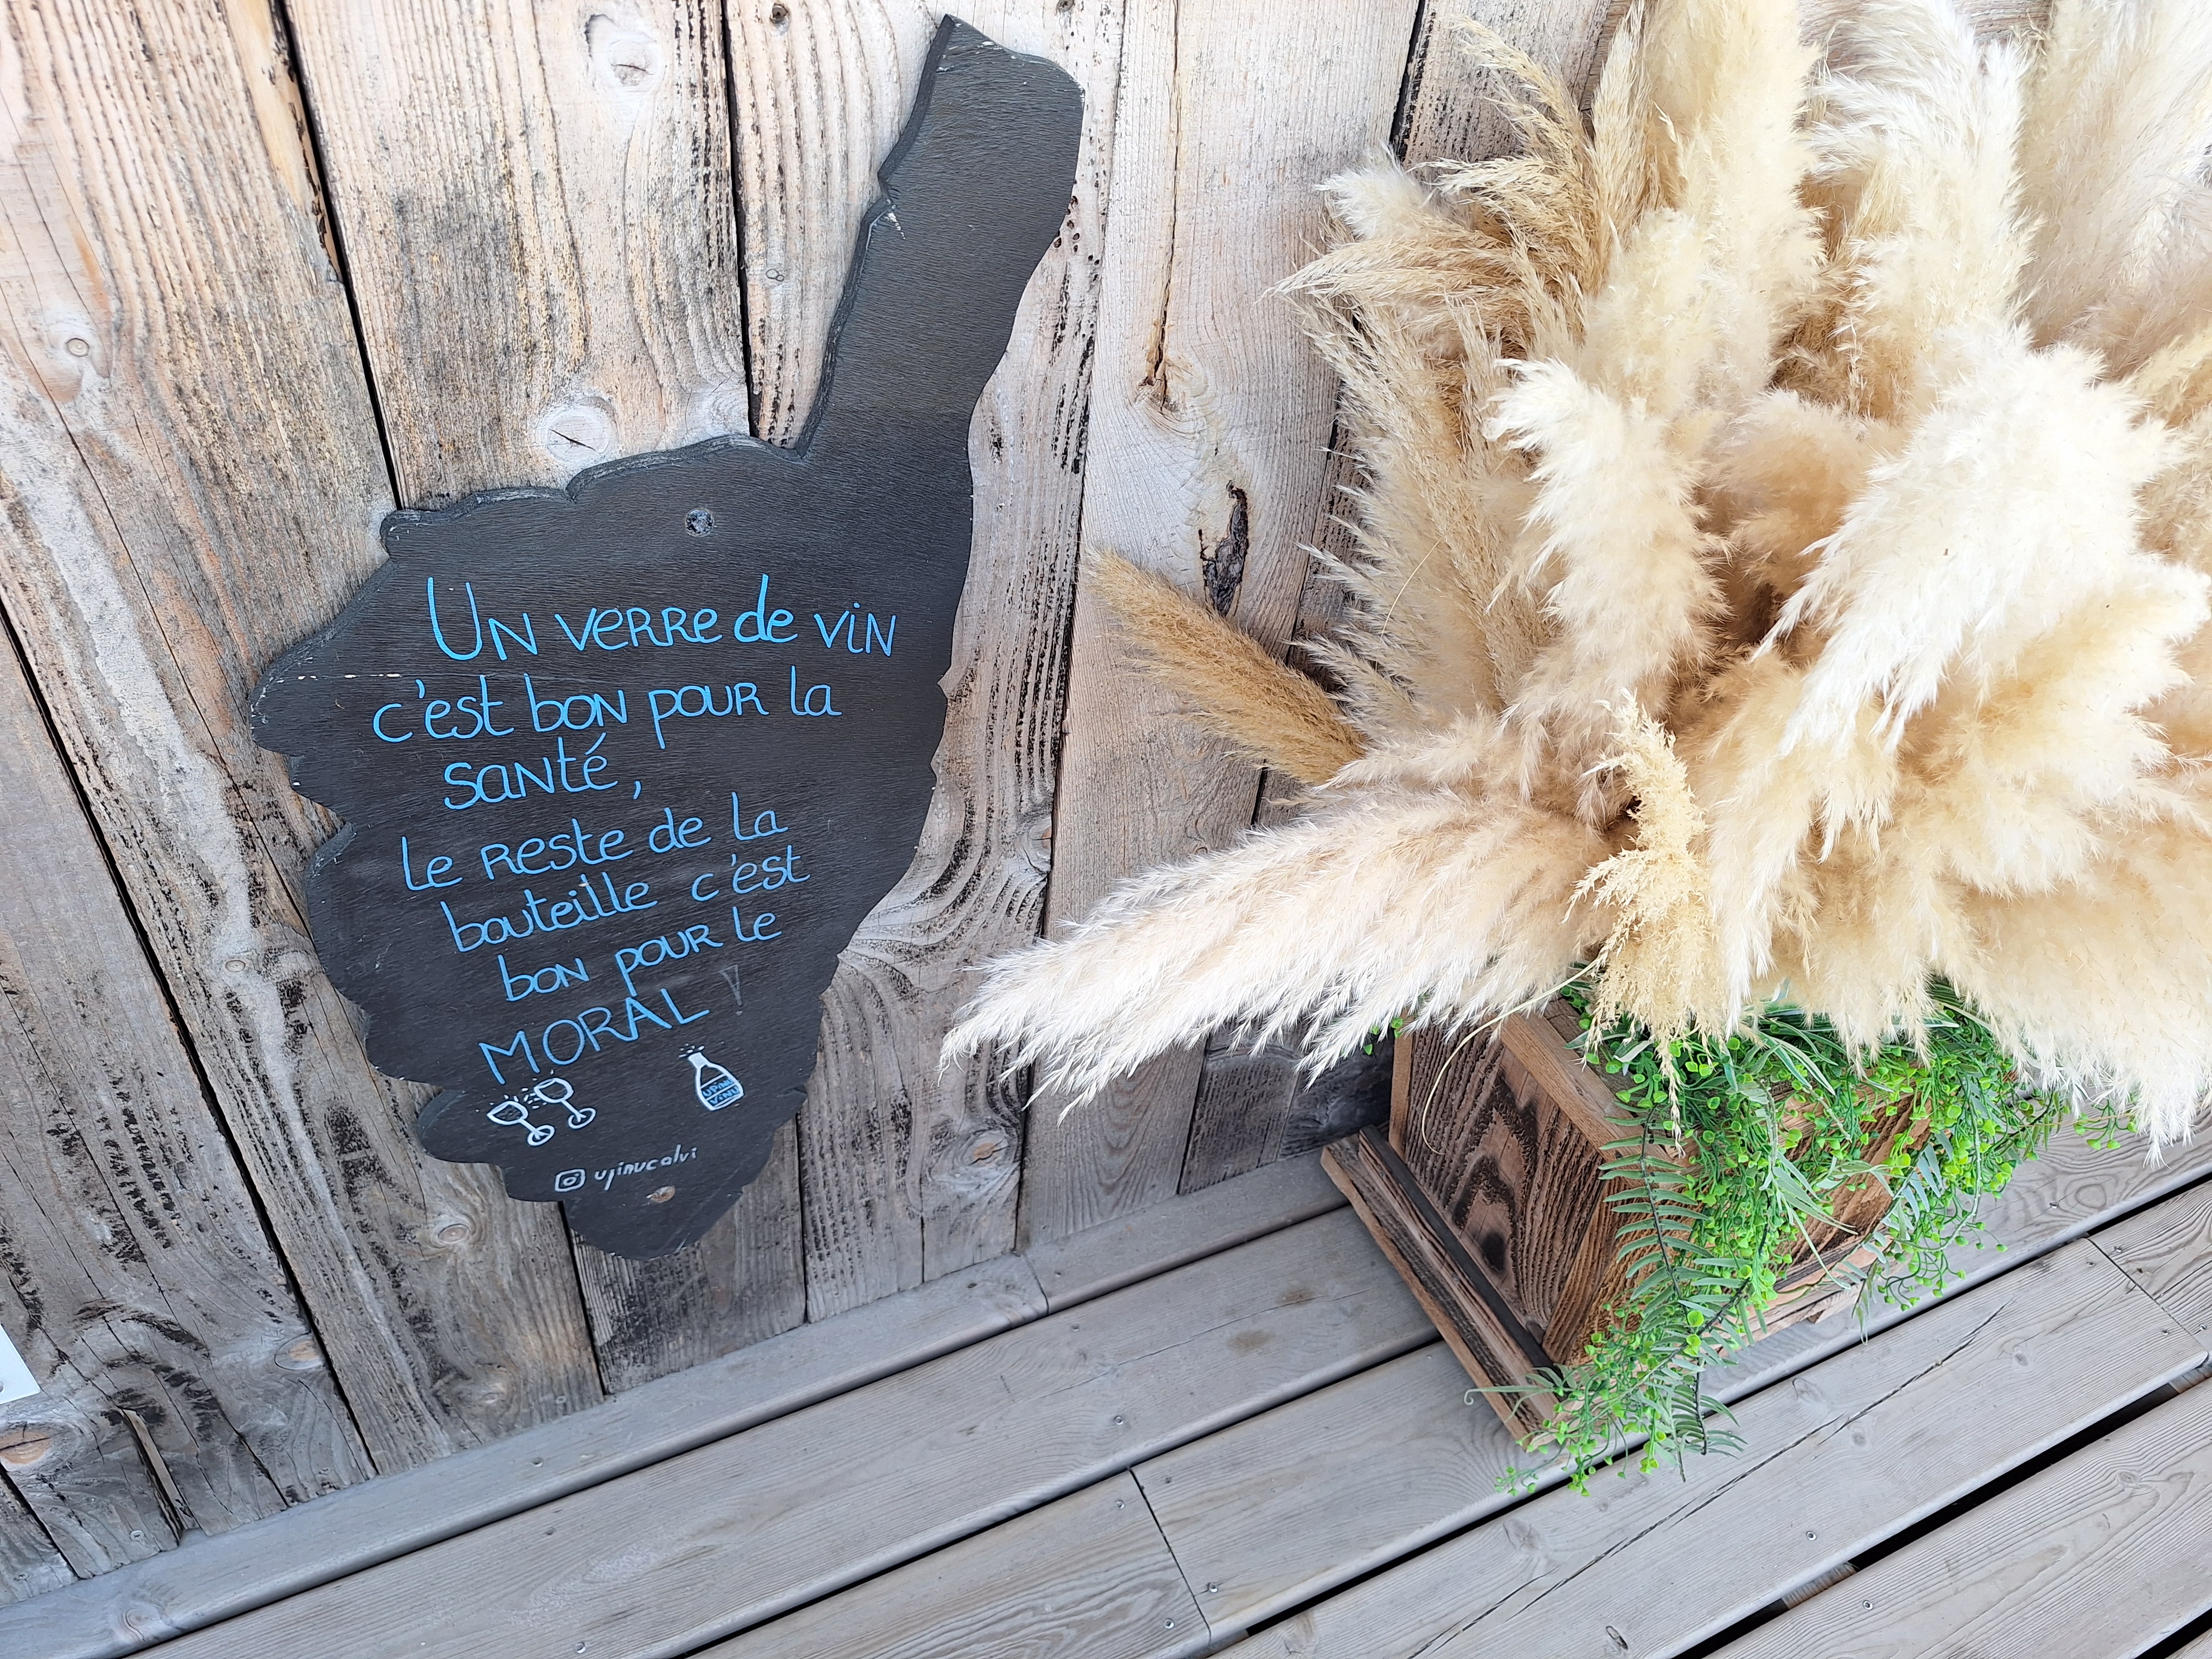 Un verre de vin
c'est bon pour la
santé,
le reste de la
bouteille c'est
bon pour le
MORAL !